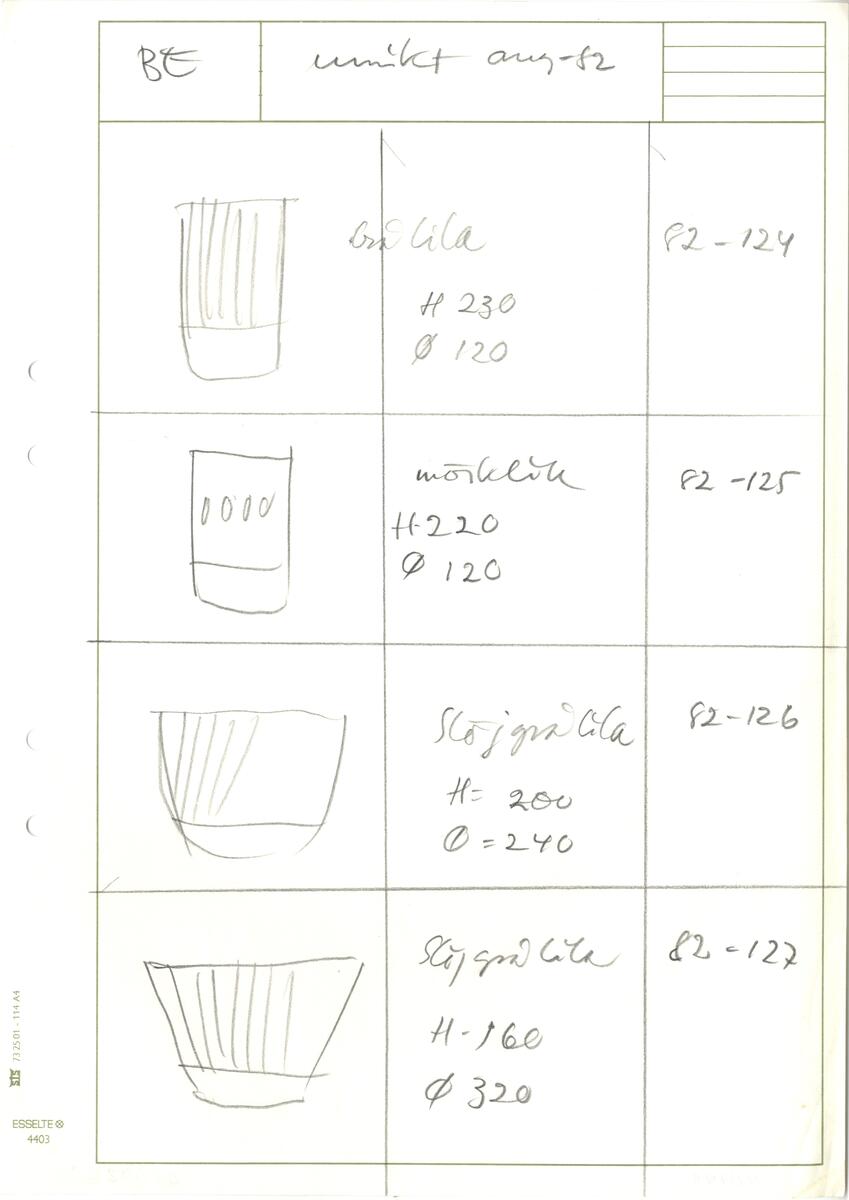 BE
unikt aug-82
grålila
82-124
H 230
Ø 120
mörklila
82-125
H-220
Ø 120
Slöjgrålila
82-126
H= 200
Ø = 240
Slöjgrålila
82-127
H-160
Ø 320
SIS 73 25 01 - 114 A4
ESSELTE
4403